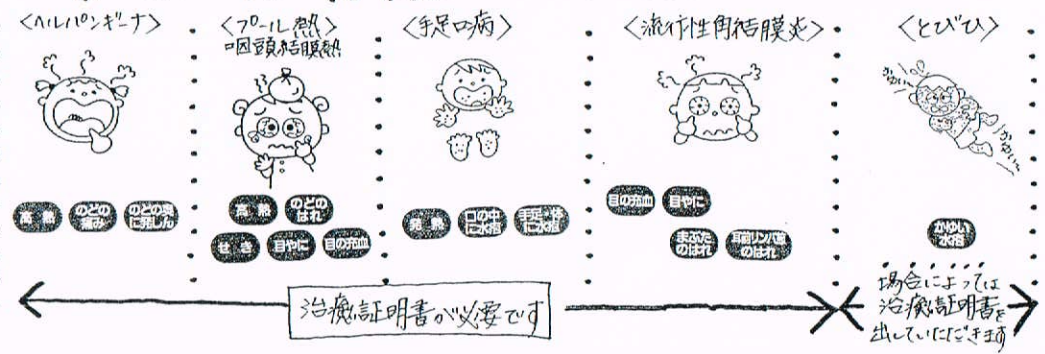 〈ヘルパンギーナ〉
高熱
のどの痛み
のどの奥に発しん
〈プール熱〉
咽頭結膜熱
高熱
のどのはれ
せき
目やに
目の充血
〈手足口病〉
発熱
口の中に水疱
手足や体に水疱
〈流行性角結膜炎〉
目の充血
目やに
まぶたのはれ
耳前リンパ管のはれ
〈とびひ〉
かゆい
かゆい〜
かゆい水疱
治癒証明書が必要です
場合によっては
治癒証明書を
出していただきます